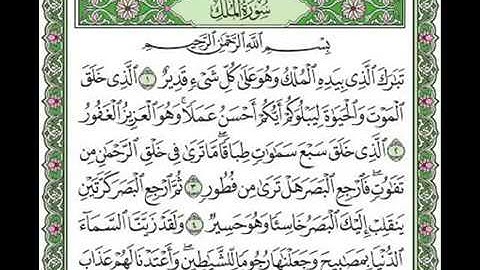 سُورَةُ المُلْكِ
بِسْمِ اللَّهِ الرَّحْمَٰنِ الرَّحِيمِ
تَبَٰرَكَ ٱلَّذِى بِيَدِهِ ٱلْمُلْكُ وَهُوَ عَلَىٰ كُلِّ شَىْءٍ قَدِيرٌ ١ ٱلَّذِى خَلَقَ
ٱلْمَوْتَ وَٱلْحَيَوٰةَ لِيَبْلُوَكُمْ أَيُّكُمْ أَحْسَنُ عَمَلًا ۚ وَهُوَ ٱلْعَزِيزُ ٱلْغَفُورُ
٢ ٱلَّذِى خَلَقَ سَبْعَ سَمَٰوَٰتٍ طِبَاقًا ۖ مَّا تَرَىٰ فِى خَلْقِ ٱلرَّحْمَٰنِ مِن
تَفَٰوُتٍ ۖ فَٱرْجِعِ ٱلْبَصَرَ هَلْ تَرَىٰ مِن فُطُورٍ ٣ ثُمَّ ٱرْجِعِ ٱلْبَصَرَ كَرَّتَيْنِ
يَنقَلِبْ إِلَيْكَ ٱلْبَصَرُ خَاسِئًا وَهُوَ حَسِيرٌ ٤ وَلَقَدْ زَيَّنَّا ٱلسَّمَآءَ
ٱلدُّنْيَا بِمَصَٰبِيحَ وَجَعَلْنَٰهَا رُجُومًا لِّلشَّيَٰطِينِ ۖ وَأَعْتَدْنَا لَهُمْ عَذَابَ